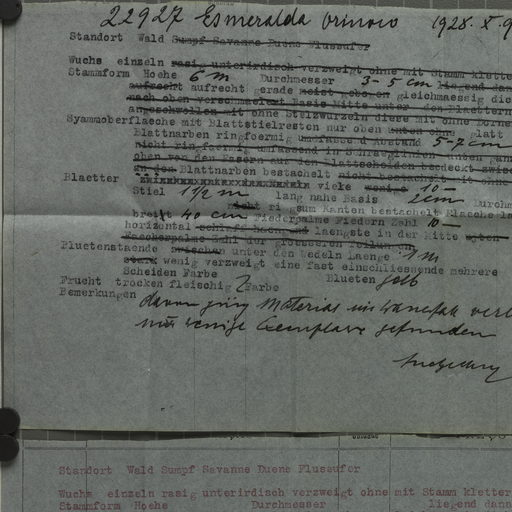 22927 Esmeralda Orinoco 1928.X.9
Standort Wald Sumpf Savanne Duene Flussufer
Wuchs einzeln rasig unterirdisch verzweigt ohne mit Stamm klette
Stammform Hoehe 6 m Durchmesser 3-5 cm liegend dan
aufrecht aufrecht gerade meist gebogen gleichmaessig dic
nach oben verschmaelert Basis Mitte unter den Blaettern
angeschwollen mit ohne Stelzwurzeln diese mit ohne Dorne
Stammoberflaeche mit Blattstielresten nur oben unten ohne glatt
Blattnarben ringfoermig umfassend Abstand 5-7 cm
nicht ringfoermig umfassend in
oben von den Fasern aus den Blattscheiden bedeckt zwisc
an den Blattnarben bestachelt nicht
Blaetter viele wenig 10-
Stiel 1 1/2 m lang nahe Basis 2 cm Durchm
nicht Kanten bestachelt Flaeche
breit 40 cm Fiederpalme Fiedern Zahl 10-
horizontal schlaff laengste in der Mitte
Faecherpalme Zahl der groesseren Teilung
Bluetenstaende zwischen unter den Wedeln Laenge 1 m
stark wenig verzweigt eine fast einschliessende mehrere
Scheiden Farbe Blueten gelb
Frucht trocken fleischig Farbe
Bemerkungen davon ging Material
nur wenige Exemplare gefunden
Standort Wald Sumpf Savanne Duene Flussufer
Wuchs einzeln rasig unterirdisch verzweigt ohne mit Stamm kletter
Stammform Hoehe Durchmesser liegend dann